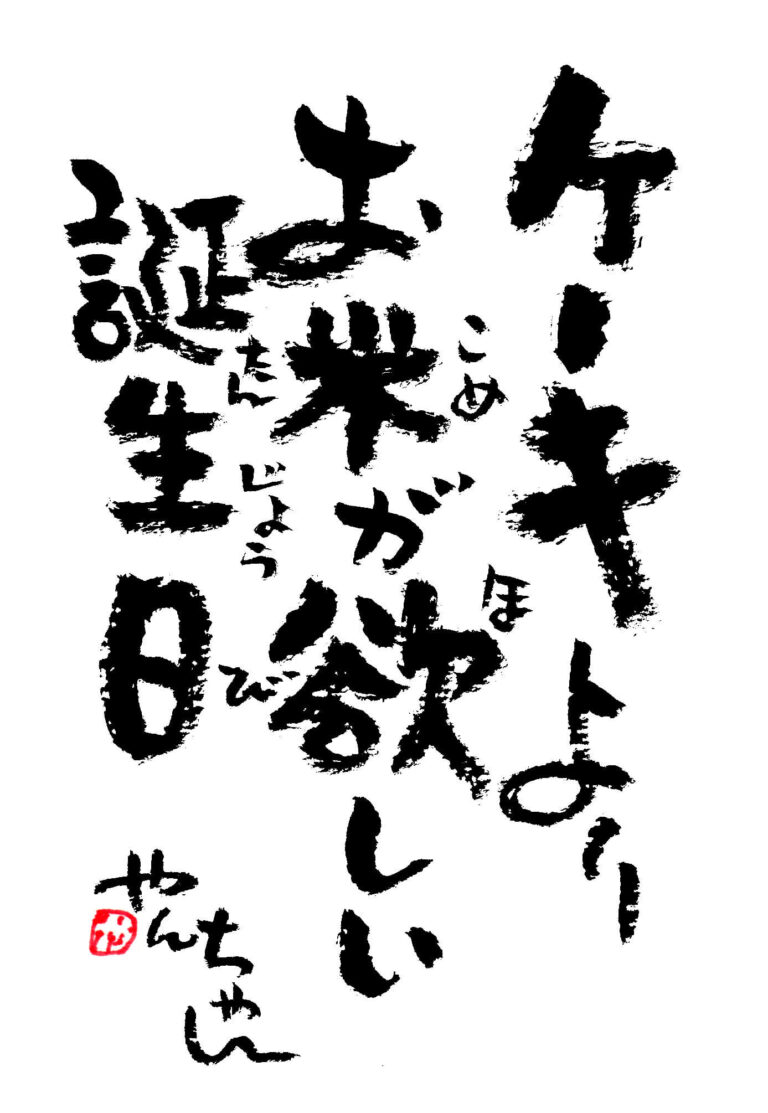 ケーキより
お米が欲しい
こめ
ほ
誕生日
たんじょうび
やんちゃん